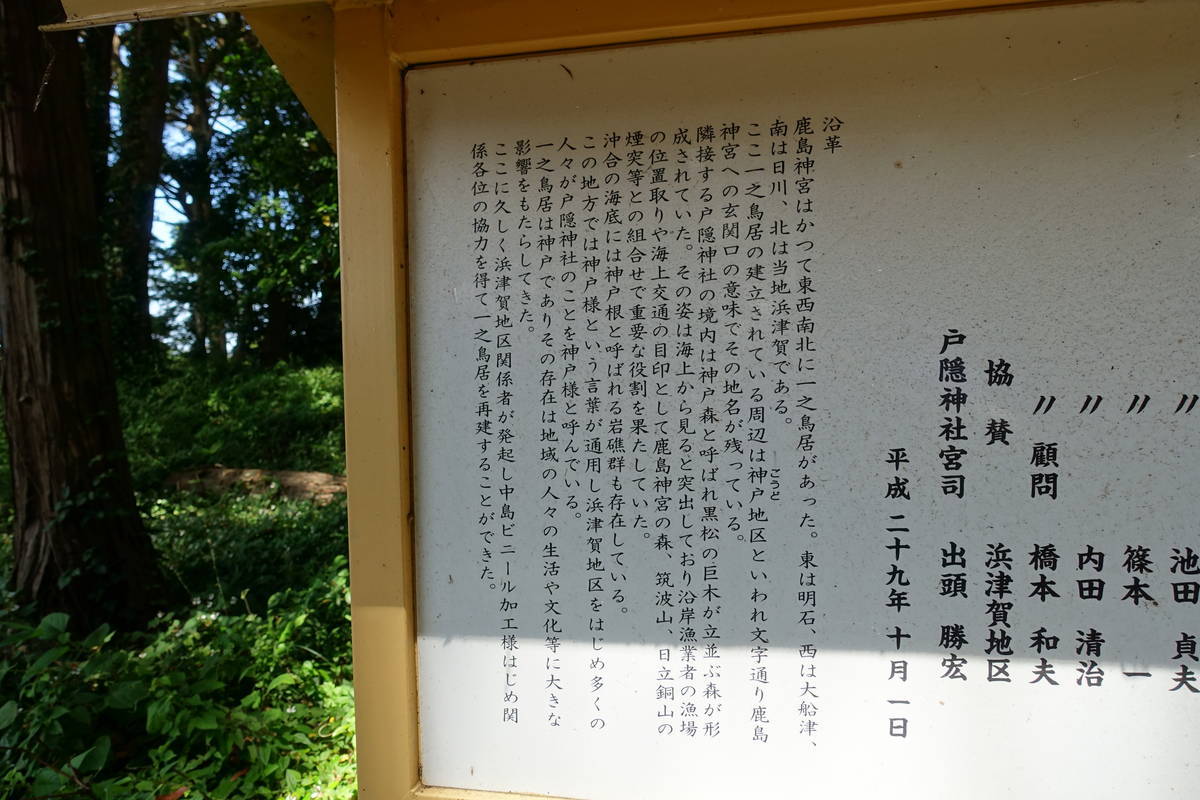 〃 池田 貞夫
〃 篠本 一
〃 内田 清治
〃 顧問 橋本 和夫
協賛 浜津賀地区
戸隠神社宮司 出頭 勝宏
平成 二十九年 十月 一日
沿革
鹿島神宮はかつて東西南北に一之鳥居があった。東は明石、西は大船津、
南は日川、北は当地浜津賀である。
ここ一之鳥居の建立されている周辺は神戸地区といわれ文字通り鹿島
ごうど
神宮への玄関口の意味でその地名が残っている。
隣接する戸隠神社の境内は神戸森と呼ばれ黒松の巨木が立並ぶ森が形
成されていた。その姿は海上から見ると突出しており沿岸漁業者の漁場
の位置取りや海上交通の目印として鹿島神宮の森、筑波山、日立銅山の
煙突等との組合せで重要な役割を果たしていた。
沖合の海底には神戸根と呼ばれる岩礁群も存在している。
この地方では神戸様という言葉が通用し浜津賀地区をはじめ多くの
人々が戸隠神社のことを神戸様と呼んでいる。
一之鳥居は神戸でありその存在は地域の人々の生活や文化等に大きな
影響をもたらしてきた。
ここに久しく浜津賀地区関係者が発起し中島ビニール加工様はじめ関
係各位の協力を得て一之鳥居を再建することができた。